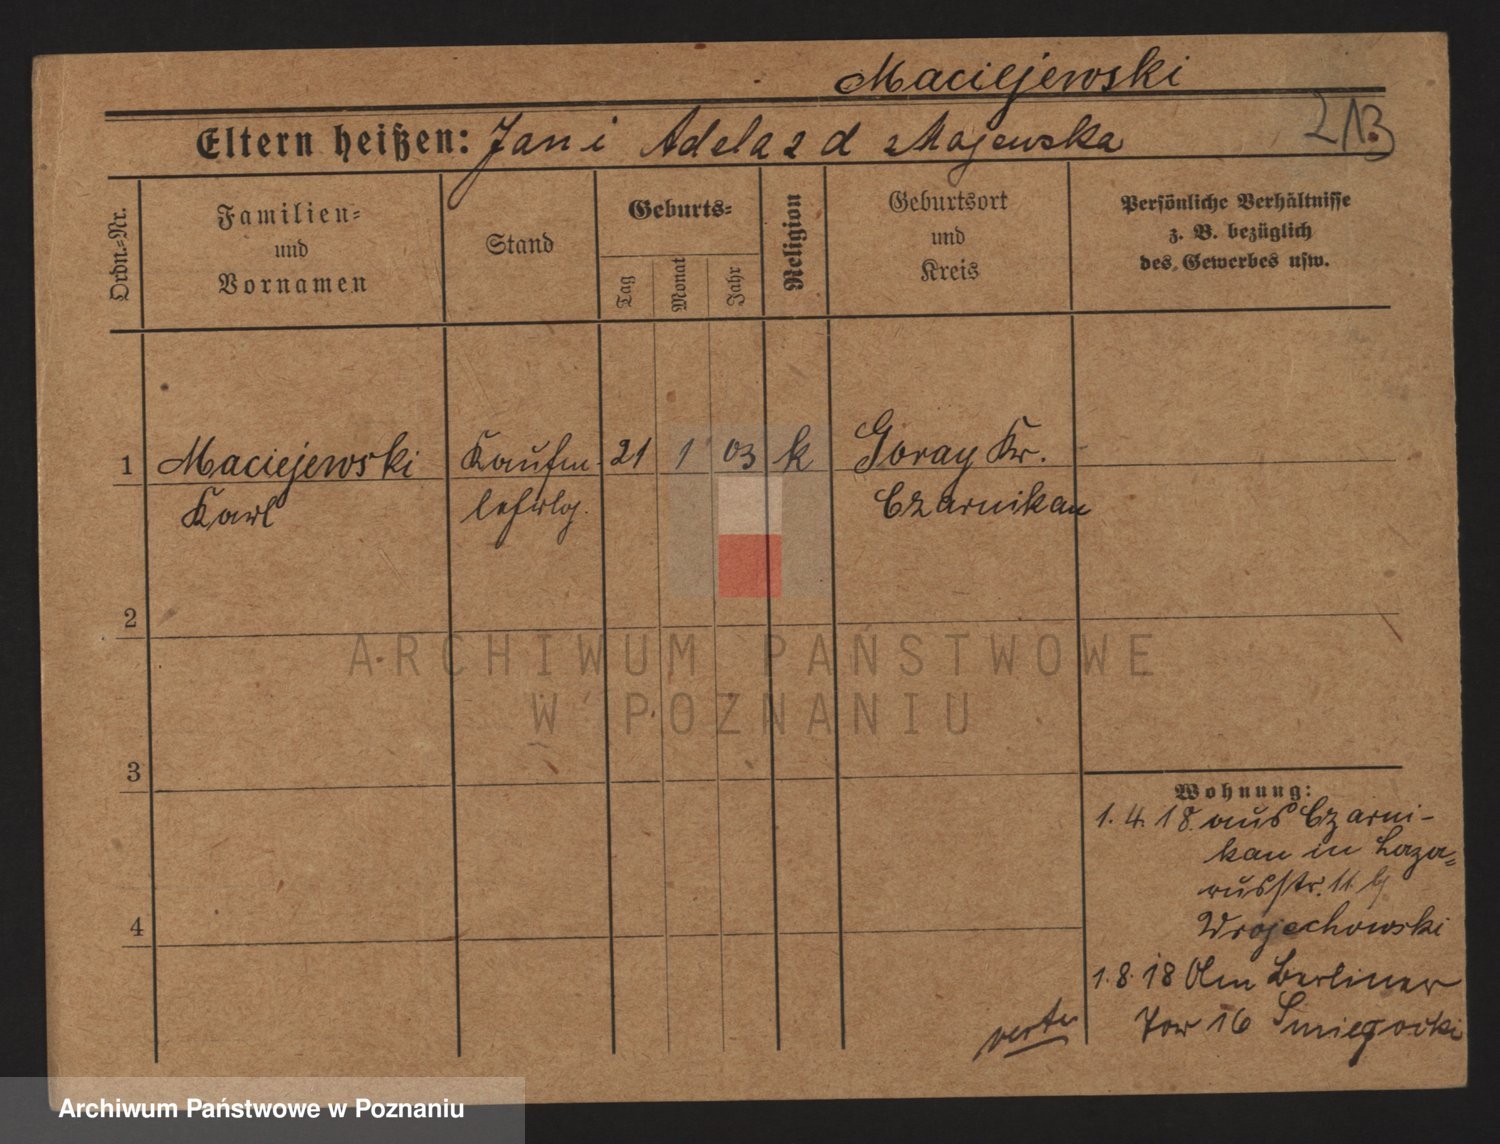 Maciejewski
Eltern heißen: Jan i Adela z d Majewska
213
Ordn.=Nr.
Familien=
und
Vornamen
Stand
Geburts=
Tag
Monat
Jahr
Religion
Geburtsort
und
Kreis
Persönliche Verhältnisse
z. B. bezüglich
des Gewerbes usw.
1 Maciejewski Kaufm. 21 1 03 k Goray Kr.
Karl lehrlg. Czarnikau
2
ARCHIWUM PAŃSTWOWE
W POZNANIU
3
Wohnung:
1.4.18. aus Czarni-
kau in Laza=
russtr. 11 b
4
Wojechowski
1.8.18 Am Berliner
Tor 16 Smiegocki
verte
Archiwum Państwowe w Poznaniu